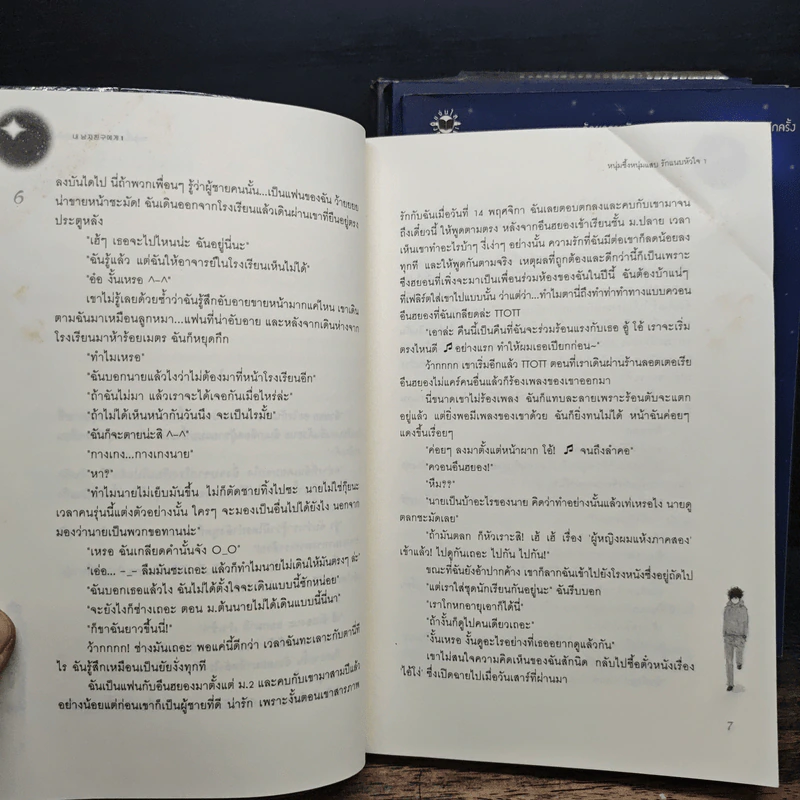 내 남자친구에게 1
6
ลงบันไดไป นี่ถ้าพวกเพื่อนๆ รู้ว่าผู้ชายคนนั้น...เป็นแฟนของฉัน ว้ายยยย
น่าขายหน้าชะมัด! ฉันเดินออกจากโรงเรียนแล้วเดินผ่านเขาที่ยืนอยู่ตรง
ประตูหลัง
"เฮ้ๆ เธอจะไปไหนน่ะ ฉันอยู่นี่นะ"
"ฉันรู้แล้ว แต่ฉันให้อาจารย์ในโรงเรียนเห็นไม่ได้"
"อ๋อ งั้นเหรอ ^–^"
เขาไม่รู้เลยด้วยซ้ำว่าฉันรู้สึกอับอายขายหน้ามากแค่ไหน เขาเดิน
ตามฉันมาเหมือนลูกหมา...แฟนที่น่าอับอาย และหลังจากเดินห่างจาก
โรงเรียนมาห้าร้อยเมตร ฉันก็หยุดกึก
"ทำไมเหรอ"
"ฉันบอกนายแล้วไงว่าไม่ต้องมาที่หน้าโรงเรียนอีก"
"ถ้าฉันไม่มา แล้วเราจะได้เจอกันเมื่อไหร่ล่ะ"
"ถ้าไม่ได้เห็นหน้ากันวันนึง จะเป็นไรมั้ย"
"ฉันก็จะตายน่ะสิ ^–^"
"กางเกง...กางเกงนาย"
"หา?"
"ทำไมนายไม่เย็บมันขึ้น ไม่ก็ตัดชายทิ้งไปซะ นายไม่ใช่กุ๊ยนะ
เวลาคนรุ่นนี้แต่งตัวอย่างนั้น ใครๆ จะมองเป็นอื่นไปได้ยังไง นอกจาก
มองว่านายเป็นพวกขอทานน่ะ"
"เหรอ ฉันเกลียดคำนั้นจัง O_O"
"เอ่อ... -_- ลืมมันซะเถอะ แล้วก็ทำไมนายไม่เดินให้มันตรงๆ ล่ะ"
"ฉันบอกเธอแล้วไง ฉันไม่ได้ตั้งใจจะเดินแบบนี้ซักหน่อย"
"จะยังไงก็ช่างเถอะ ตอน ม.ต้นนายไม่ได้เดินแบบนี้นี่นา"
"ก็ขาฉันยาวขึ้นนี่!"
ว้ากกกก! ช่างมันเถอะ พอแค่นี้ดีกว่า เวลาฉันทะเลาะกับตานี่ที
ไร ฉันรู้สึกเหมือนเป็นยัยงั่งทุกที
ฉันเป็นแฟนกับอึนฮยองมาตั้งแต่ ม.2 และคบกับเขามาสามปีแล้ว
อย่างน้อยแต่ก่อนเขาก็เป็นผู้ชายที่ดี น่ารัก เพราะงั้นตอนเขาสารภาพ
หนุ่มซึ้งหนุ่มแสบ รักแนบหัวใจ 1
รักกับฉันเมื่อวันที่ 14 พฤศจิกา ฉันเลยตอบตกลงและคบกับเขามาจน
ถึงเดี๋ยวนี้ ให้พูดตามตรง หลังจากอึนฮยองเข้าเรียนชั้น ม.ปลาย เวลา
เห็นเขาทำอะไรบ้าๆ งี่เง่าๆ อย่างนั้น ความรักที่ฉันมีต่อเขาก็ลดน้อยลง
ทุกที และให้พูดกันตามจริง เหตุผลที่ถูกต้องและดีกว่านี้ก็เป็นเพราะ
ซึงฮยอนที่เพิ่งจะมาเป็นเพื่อนร่วมห้องของฉันในปีนี้ ฉันต้องบ้าแน่ๆ
ที่เฟลิร์ตใส่เขาไปแบบนั้น ว่าแต่ว่า...ทำไมตานี่ถึงทำท่าทำทางแบบควอน
อึนฮยองที่ฉันเกลียดล่ะ TTOTT
"เอาล่ะ คืนนี้เป็นคืนที่ฉันจะร่วมร้อนแรงกับเธอ อู้ โอ้ เราจะเริ่ม
ตรงไหนดี ♫ อย่างแรก ทำให้ผมเธอเปียกก่อน~"
ว้ากกกก เขาเริ่มอีกแล้ว TTOTT ตอนที่เราเดินผ่านร้านลอตเตอเรีย
อึนฮยองไม่แคร์คนอื่นแล้วก็ร้องเพลงของเขาออกมา
นี่ขนาดเขาไม่ร้องเพลง ฉันก็แทบละลายเพราะร้อนตับจะแตก
อยู่แล้ว แต่ยิ่งพอมีเพลงของเขาด้วย ฉันก็ยิ่งทนไม่ได้ หน้าฉันค่อยๆ
แดงขึ้นเรื่อยๆ
"ค่อยๆ ลงมาตั้งแต่หน้าผาก โอ้! ♫ จนถึงลำคอ"
"ควอนอึนฮยอง!"
"หืม??"
"นายเป็นบ้าอะไรของนาย คิดว่าทำอย่างนั้นแล้วเท่เหรอไง นายดู
ตลกชะมัดเลย"
"ถ้ามันตลก ก็หัวเราะสิ! เฮ้ เฮ้ เรื่อง 'ผู้หญิงผมแห้งภาคสอง'
เข้าแล้ว! ไปดูกันเถอะ ไปกัน ไปกัน!"
ขณะที่ฉันยังอ้าปากค้าง เขาก็ลากฉันเข้าไปยังโรงหนังซึ่งอยู่ถัดไป
"แต่เราใส่ชุดนักเรียนกันอยู่นะ" ฉันรีบบอก
"เราโกหกอายุเอาก็ได้นี่"
"ถ้างั้นก็ดูไปคนเดียวเถอะ"
"งั้นเหรอ งั้นดูอะไรอย่างที่เธออยากดูแล้วกัน"
เขาไม่สนใจความคิดเห็นของฉันสักนิด กลับไปซื้อตั๋วหนังเรื่อง
'ไอ้โง่' ซึ่งเปิดฉายไปเมื่อวันเสาร์ที่ผ่านมา
7